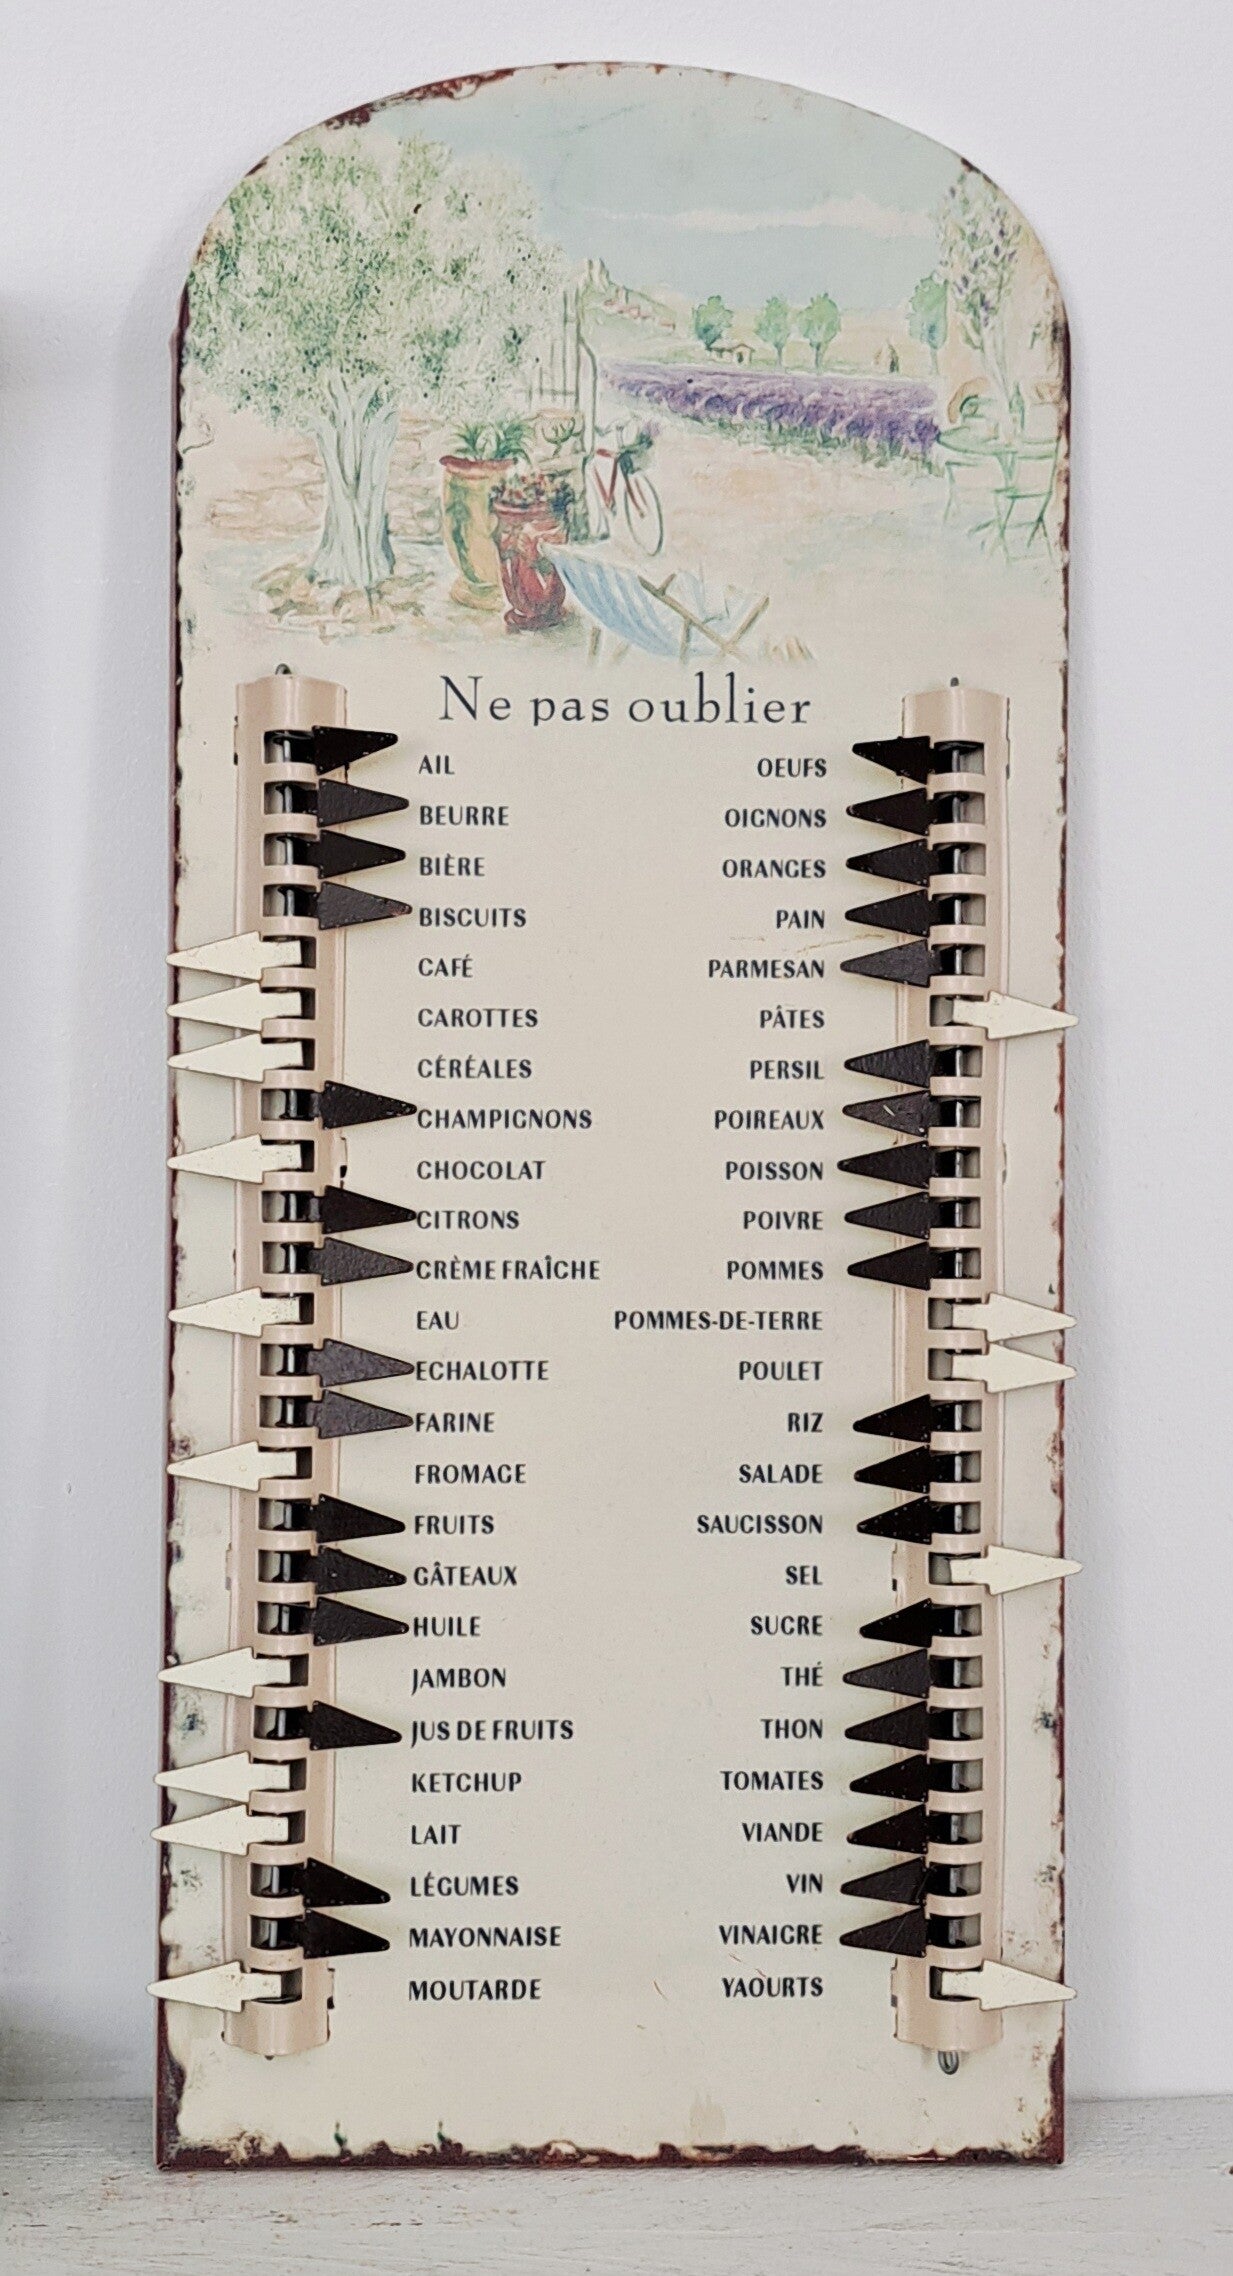 Ne pas oublier
AIL OEUFS
BEURRE OIGNONS
BIÈRE ORANGES
BISCUITS PAIN
CAFÉ PARMESAN
CAROTTES PÂTES
CÉRÉALES PERSIL
CHAMPIGNONS POIREAUX
CHOCOLAT POISSON
CITRONS POIVRE
CRÈME FRAÎCHE POMMES
EAU POMMES-DE-TERRE
ECHALOTTE POULET
FARINE RIZ
FROMAGE SALADE
FRUITS SAUCISSON
GÂTEAUX SEL
HUILE SUCRE
JAMBON THÉ
JUS DE FRUITS THON
KETCHUP TOMATES
LAIT VIANDE
LÉGUMES VIN
MAYONNAISE VINAIGRE
MOUTARDE YAOURTS